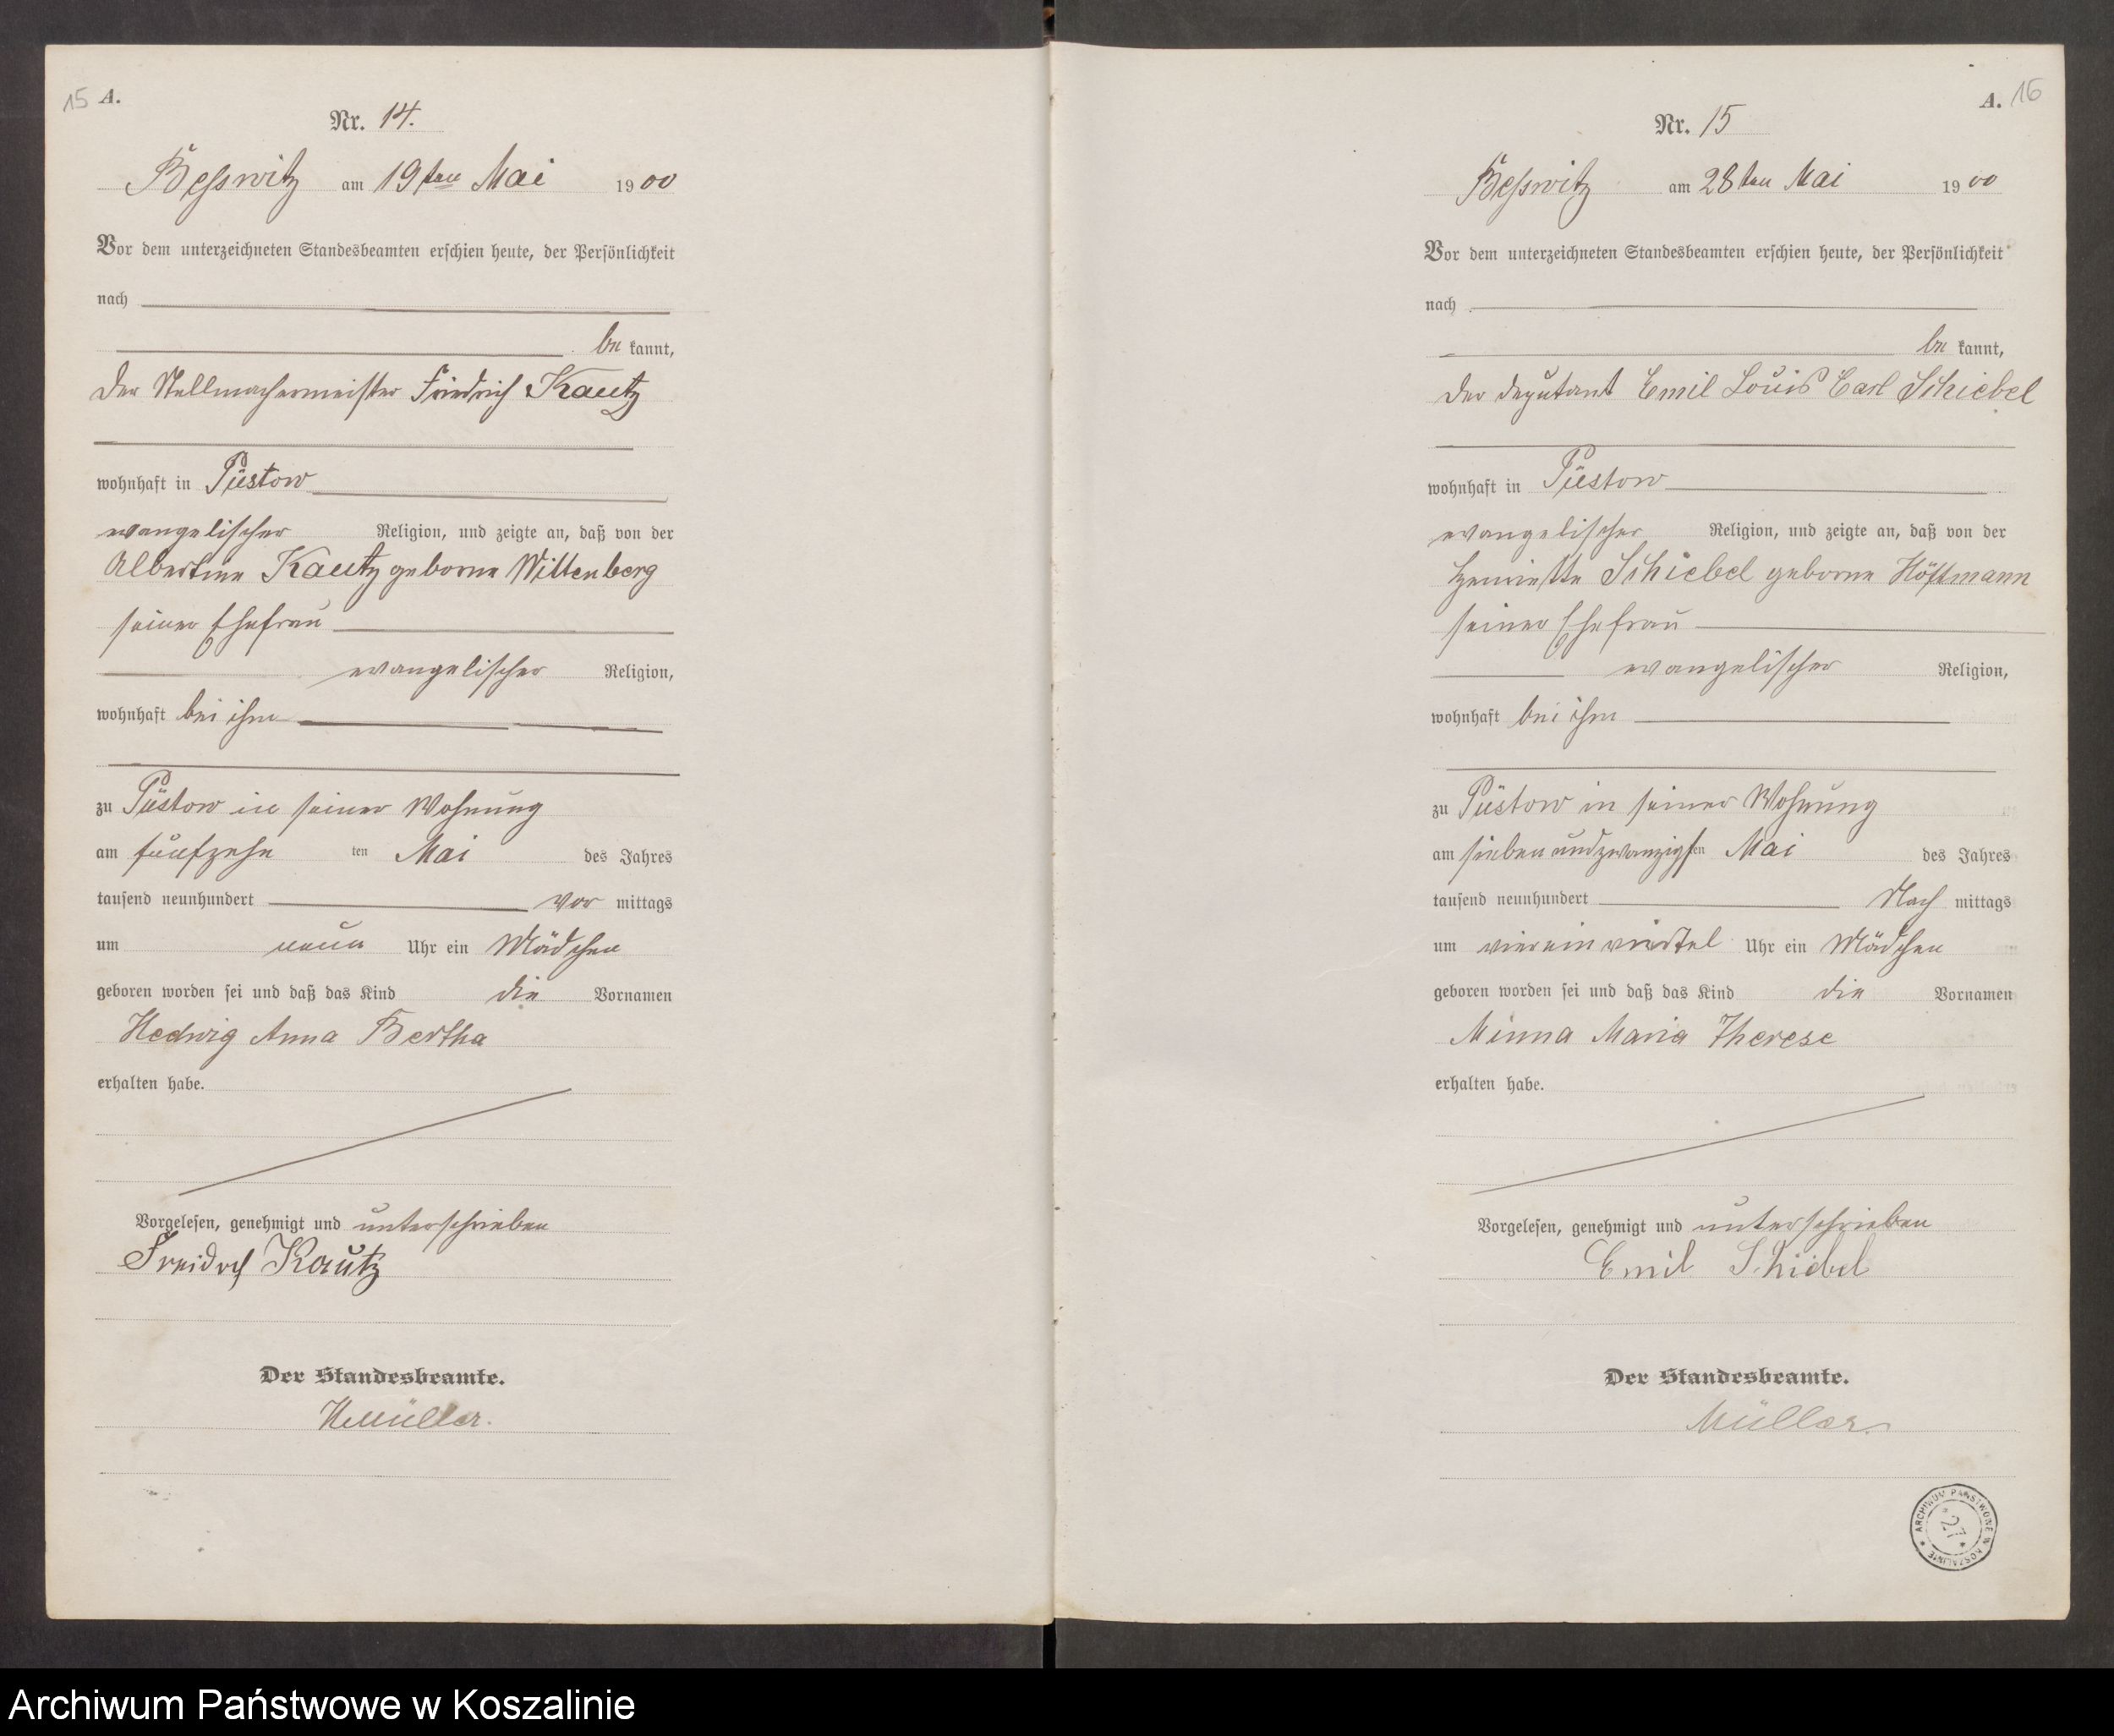 15 A.
Nr. 14.
Besswitz am 19ten Mai 1900
Vor dem unterzeichneten Standesbeamten erschien heute, der Persönlichkeit
nach
be kannt,
der Stellmachermeister Friedrich Kautz
wohnhaft in Püstow
evangelischer Religion, und zeigte an, daß von der
Albertine Kautz geborne Wittenberg
seiner Ehefrau
evangelischer Religion,
wohnhaft bei ihm
zu Püstow in seiner Wohnung
am fünfzehn ten Mai des Jahres
tausend neunhundert vor mittags
um neun Uhr ein Mädchen
geboren worden sei und daß das Kind die Vornamen
Hedwig Anna Bertha
erhalten habe.
Vorgelesen, genehmigt und unterschrieben
Freidrch Kautz
Der Standesbeamte.
HMüller.
A. 16
Nr. 15
Besswitz am 28ten Mai 1900
Vor dem unterzeichneten Standesbeamten erschien heute, der Persönlichkeit
nach
be kannt,
der Deputant Emil Louis Carl Schiebel
wohnhaft in Püstow
evangelischer Religion, und zeigte an, daß von der
Henriette Schiebel geborne Höftmann
seiner Ehefrau
evangelischer Religion,
wohnhaft bei ihm
zu Püstow in seiner Wohnung
am siebenundzwanzigsten Mai des Jahres
tausend neunhundert Nach mittags
um vier ein viertel Uhr ein Mädchen
geboren worden sei und daß das Kind die Vornamen
Minna Maria Therese
erhalten habe.
Vorgelesen, genehmigt und unterschrieben
Emil Schiebel
Der Standesbeamte.
Müller.
ARCHIWUM PAŃSTWOWE W KOSZALINIE
27
Archiwum Państwowe w Koszalinie